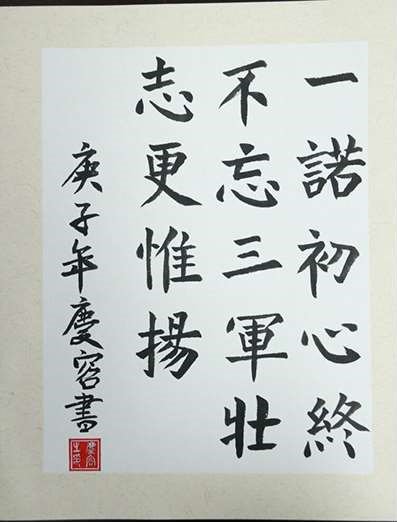 一諾初心終
不忘三軍壯
志更惟揚
庚子年慶容書